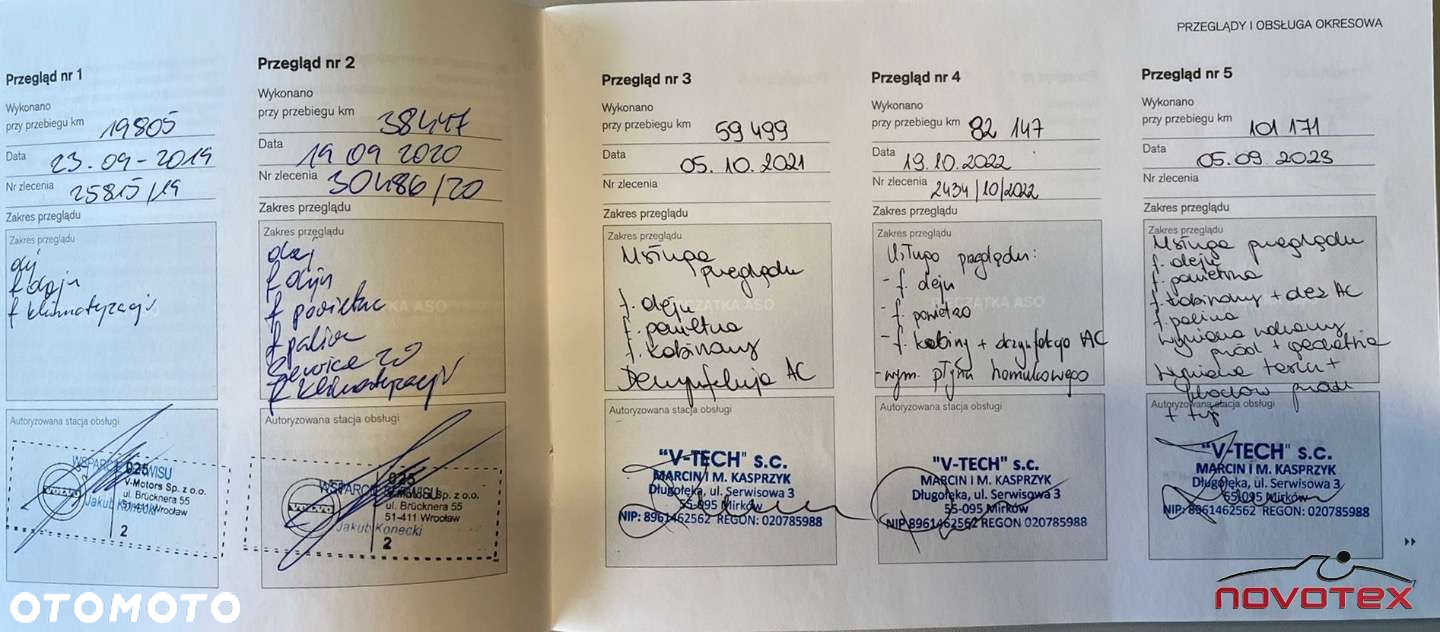 PRZEGLĄDY I OBSŁUGA OKRESOWA
Przegląd nr 1
Wykonano
przy przebiegu km 19805
Data 23.09-2019
Nr zlecenia 25815/19
Zakres przeglądu
Zakres przeglądu
olej
f oleju
f klimatyzacji
Autoryzowana stacja obsługi
WSPARCIE SERWISU
025
V-Motors Sp. z o.o.
ul. Brücknera 55
51-411 Wrocław
Jakub Konecki
2
Przegląd nr 2
Wykonano
przy przebiegu km 38447
Data 19 09 2020
Nr zlecenia 30486/20
Zakres przeglądu
Zakres przeglądu
olej
f oleju
f powietrza
f paliwa
Service 2.0
f klimatyzacji
Autoryzowana stacja obsługi
025
WSPARCIE SERWISU
V-Motors Sp. z o.o.
ul. Brücknera 55
51-411 Wrocław
Jakub Konecki
2
Przegląd nr 3
Wykonano
przy przebiegu km 59 499
Data 05. 10. 2021
Nr zlecenia
Zakres przeglądu
Zakres przeglądu
Usługa
przeglądu
PIECZĄTKA ASO
f. oleju
f. powietrza
f. kabinowy
Dezynfekcja AC
Autoryzowana stacja obsługi
"V-TECH" s.c.
MARCIN I M. KASPRZYK
Długołęka, ul. Serwisowa 3
55-095 Mirków
NIP: 8961462562 REGON: 020785988
Przegląd nr 4
Wykonano
przy przebiegu km 82 147
Data 19.10.2022
Nr zlecenia 2434/10/2022
Zakres przeglądu
Zakres przeglądu
Usługa przeglądu:
- f. oleju
PIECZĄTKA ASO
- f. powietrza
- f. kabiny + dezynfekcja AC
- wym. płynu hamulcowego
Autoryzowana stacja obsługi
"V-TECH" s.c.
MARCIN I M. KASPRZYK
Długołęka, ul. Serwisowa 3
55-095 Mirków
NIP 8961462562 REGON: 020785988
Przegląd nr 5
Wykonano
przy przebiegu km 101 171
Data 05.09.2023
Nr zlecenia
Zakres przeglądu
Zakres przeglądu
Usługa przeglądu
f. oleju
f. powietrza
f. kabinowy + dez AC
f. paliwa
wymiana
przód + geometria
wymiana tarcz +
klocków przód
+ tył
Autoryzowana stacja obsługi
"V-TECH" s.c.
MARCIN I M. KASPRZYK
Długołęka, ul. Serwisowa 3
55-095 Mirków
NIP: 8961462562 REGON: 020785988
OTOMOTO
NOVOTEX